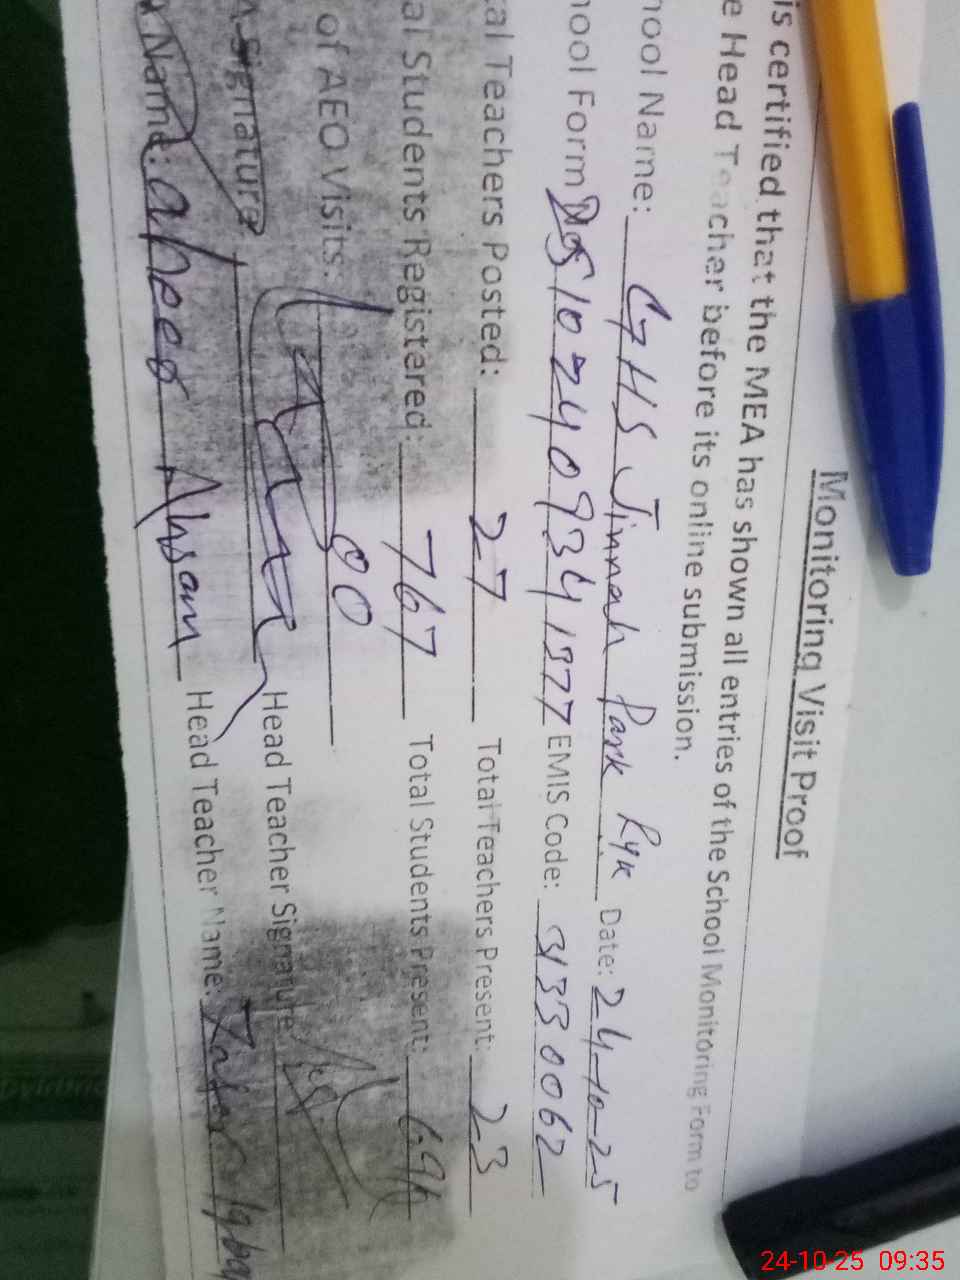 Monitoring Visit Proof
is certified that the MEA has shown all entries of the School Monitoring Form to
e Head Teacher before its online submission.
hool Name: GHS Jinnah Park Ryk Date: 24-10-25
hool Form EMIS Code: 31330062
al Teachers Posted: 27 Total Teachers Present: 23
al Students Registered: 767 Total Students Present:
of AEO Visits: 00
A Signature Head Teacher Signature
A Name: Ahsan Head Teacher Name: Zafar Iqba
24-10-25 09:35